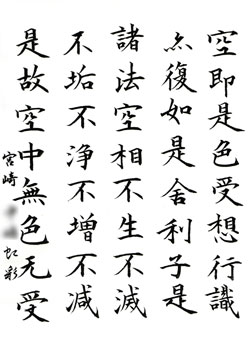 空即是色受想行識
亦復如是舍利子是
諸法空相不生不滅
不垢不浄不増不减
是故空中無色无受
宮崎 虹彩